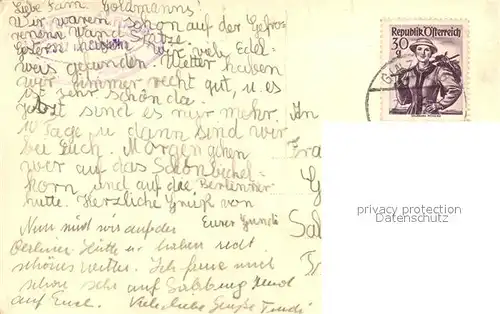 Liebe Fam. Goldmanns!
Wir waren schon auf der Gefro-
renene Wand Spitze.
Gestern haben wir viele Edel-
weis gefunden. Wetter haben
wir immer recht gut, u. es
ist sehr schön da.
Jetzt sind es nur mehr
10 Tage u. dann sind wir
bei Euch. Morgen gehen
wir auf das Schönbichel-
horn und auf die Berliner-
hütte. Herzliche Grüße von
Eurer
Nun sind wir auf der
Berliner Hütte u. haben recht
schönes Wetter. Ich freue mich
schon sehr auf Salzburg und
auf Euch. Viele liebe Grüße Trudi
An
Fra
Sal
Republik Österreich
30 g
privacy protection
Datenschutz